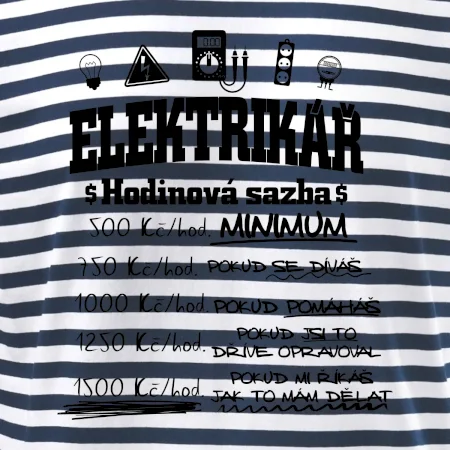 ELEKTRIKÁŘ
$ Hodinová sazba $
500 Kč/hod. MINIMUM
750 Kč/hod. POKUD SE DÍVÁŠ
1000 Kč/hod. POKUD POMÁHÁŠ
1250 Kč/hod. POKUD JSI TO
DŘÍVE OPRAVOVAL
1500 Kč/hod. POKUD MI ŘÍKÁŠ
JAK TO MÁM DĚLAT